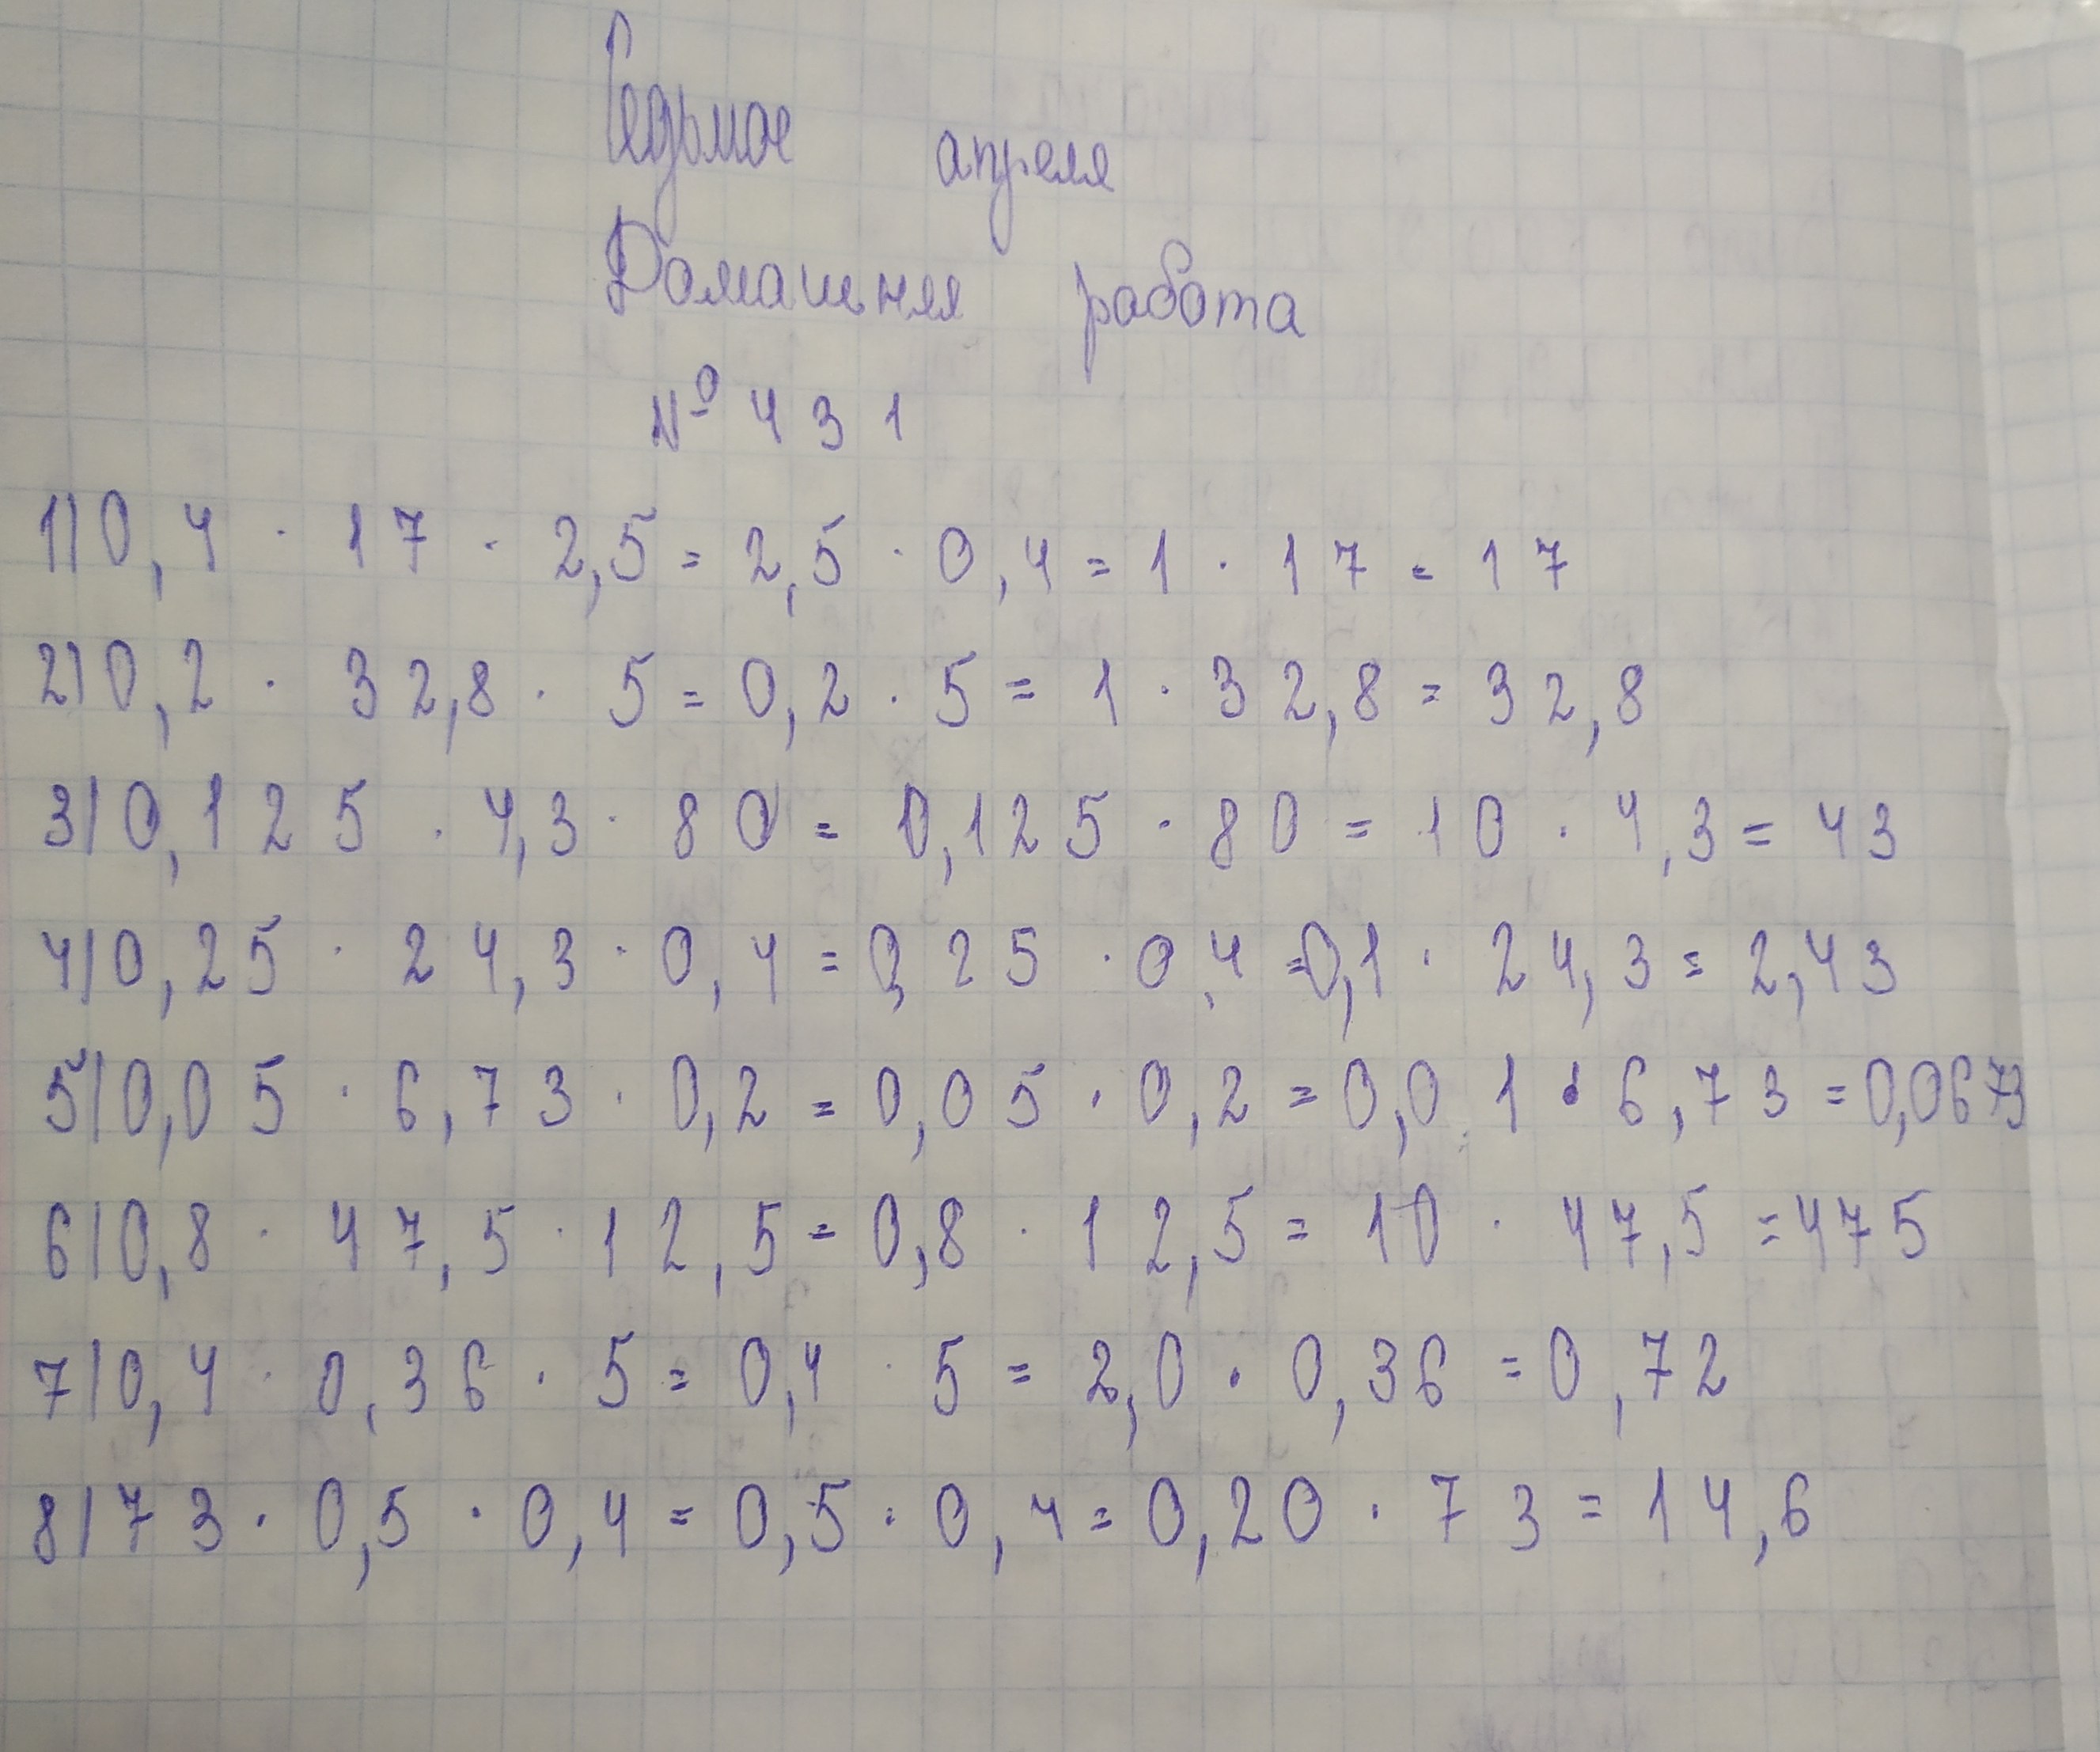 Седьмое апреля
Домашняя работа
№ 431
1) 0,4 · 17 · 2,5 = 2,5 · 0,4 = 1 · 17 = 17
2) 0,2 · 32,8 · 5 = 0,2 · 5 = 1 · 32,8 = 32,8
3) 0,125 · 4,3 · 80 = 0,125 · 80 = 10 · 4,3 = 43
4) 0,25 · 24,3 · 0,4 = 0,25 · 0,4 = 0,1 · 24,3 = 2,43
5) 0,05 · 6,73 · 0,2 = 0,05 · 0,2 = 0,01 · 6,73 = 0,0673
6) 0,8 · 47,5 · 12,5 = 0,8 · 12,5 = 10 · 47,5 = 475
7) 0,4 · 0,36 · 5 = 0,4 · 5 = 2,0 · 0,36 = 0,72
8) 73 · 0,5 · 0,4 = 0,5 · 0,4 = 0,20 · 73 = 14,6